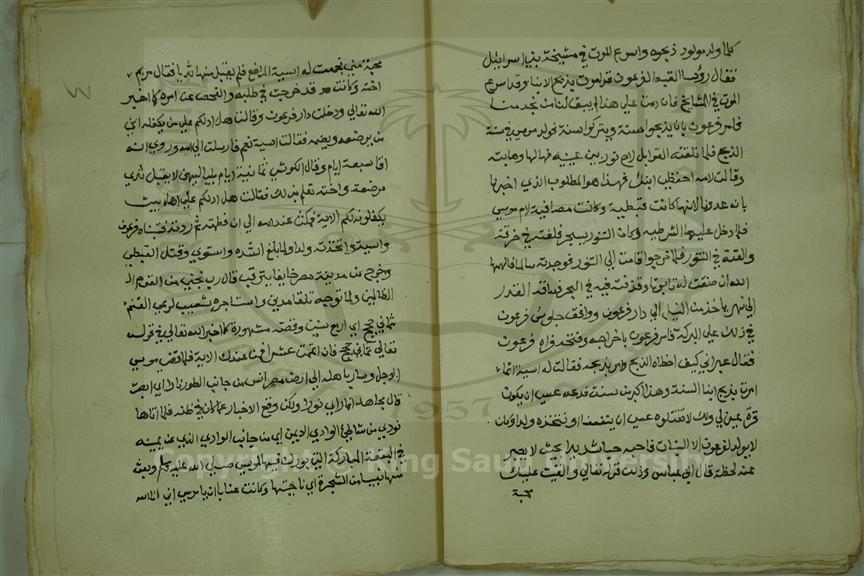 كلما ولد مولود ذبحوه واسرع الموت في مشيخة بني اسرائيل
فقال رؤسا القبط لفرعون قد امرت بذبح الابنا وقد اسرع
الموت في المشايخ فان دمت على هذا لم يبق لنا من يخدمنا
فامر فرعون بان يذبحوا سنة ويتركوا سنة فولد موسى في سنة
الذبح فلما تلقته القوابل لاح نور بين عينيه فهالها وهابته
وقالت لامه احفظي ابنك فهذا هو المطلوب الذي اخبرنا
بانه عدونا لانها كانت قبطية وكانت مصافية لام موسى
فلما دخل عليها الشرطية وكان التنور يسجر فلفته في خرقة
والقته في التنور فلما خرجوا قامت الى التنور فوجدته سالما فالهمها
الله ان صنعت له تابوتا وقذفته فيه في البحر فساقه القدر
الى نهر ياخذ من النيل الى دار فرعون ووافق جلوس فرعون
في ذلك على البركة فامر فرعون باخراجه وفتحه فراه فرعون
فقال عبراني كيف اخطاه الذبح وامر بذبحه فقالت له اسية انما
امرت بذبح ابنا السنة وهذا اكبر من سنة فدعه عسى ان يكون
قرة عين لي ولك لا تقتلوه عسى ان ينفعنا او نتخذه ولدا وكان
لا يولد لفرعون الا البنات فاحبه حبا شديدا بحيث لا يصبر
عنه لحظة قال ابن عباس وذلك قوله تعالى والقيت عليك
محبة
محبة مني فجمعت له اسية المراضع فلم يقبل منها ثديا فقال مريم
اخته وكانت قد خرجت في طلبه والفحص عن امره كما اخبر
الله تعالى ودخلت دار فرعون وقالت هل ادلكم على من يكفله اي
من يرضعه ويضمه فقالت اسية نعم فارسلت الى امه وروي انه
اقام سبعة ايام وقال الكوشي ثمانية ايام بلياليهن لا يقبل ثدي
مرضعة واخته تعلم بذلك فقالت هل ادلكم على اهل بيت
يكفلونه لكم الاية فمكث عند امه الى ان فطمته ثم ردته فتبناه فرعون
واسية واتخذته ولدا ولما بلغ اشده واستوى وقتل القبطي
وخرج من مدينة مصر خايفا يترقب قال رب نجني من القوم
الظالمين ولما توجه تلقا مدين واستاجره شعيب لرعي الغنم
ثماني حجج اي اربع سنين وقصته مشهورة كما اخبر الله تعالى في قوله
تعالى ثماني حجج فان اتممت عشرا فمن عندك الاية فلما قضى موسى
الاجل وسار باهله الى ارض مصر انس من جانب الطور نارا اي ابصر
قال مجاهد انما راى نورا ولكن وقع الاخبار عما كان في ظنه فلما اتاها
نودي من شاطئ الوادي الايمن اي من جانب الوادي الذي عن يمينه
في البقعة المباركة التي بورك فيها لموسى صلى الله عليه وسلم وبعث
منها نبيا من الشجرة اي ناحيتها وكانت عنابا ان يا موسى اني انا الله
Copyright © King Saud University
1957